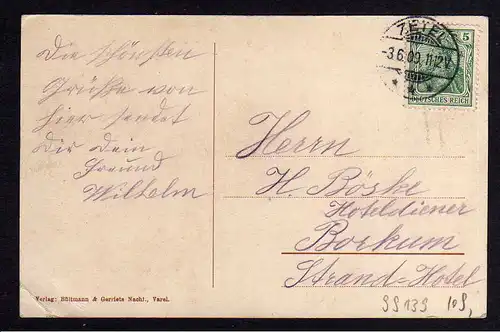 Die schönsten
Grüße von
hier sendet
Dir Dein
Freund
Wilhelm
ZETEL
-3.6.09.11-12V.
* * *
5
DEUTSCHES REICH
Herrn
H. Böske
Hoteldiener
Borkum
Strand-Hotel
Verlag: Bültmann & Gerriets Nachf., Varel.
99139 10,-